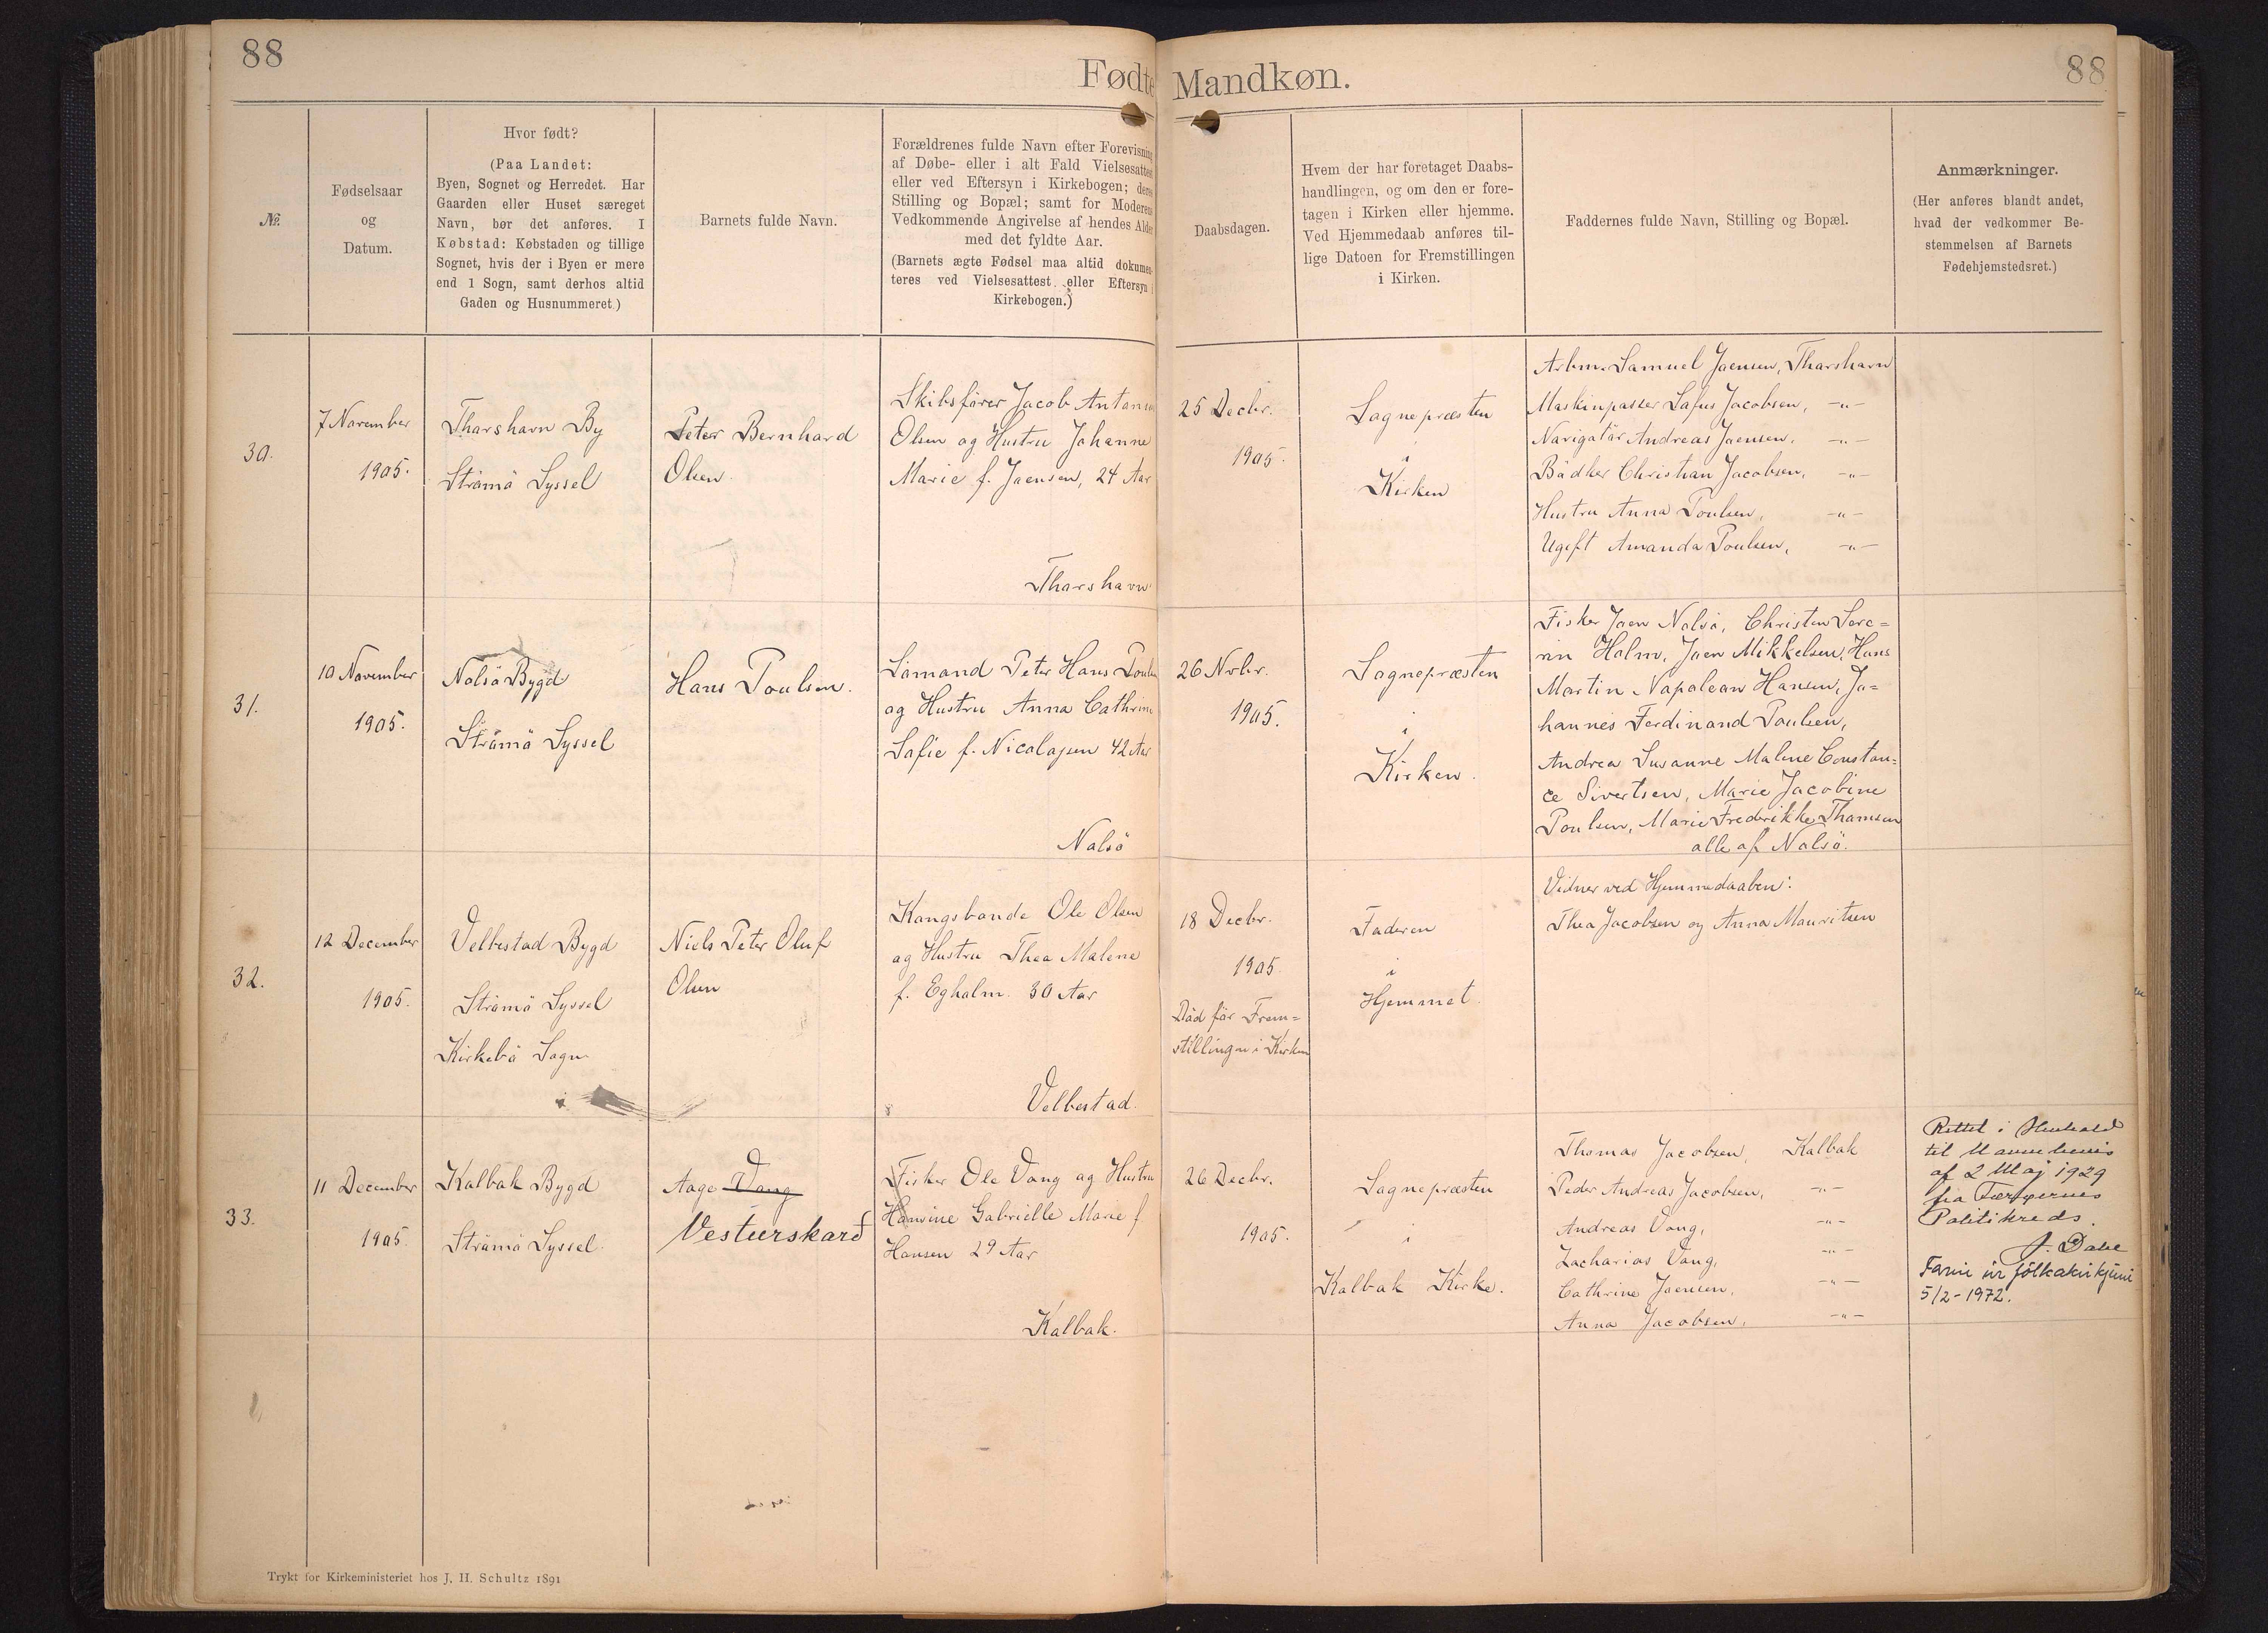 88
Fødte Mandkøn.
88
№.
Fødselsaar
og
Datum.
Hvor født?
(Paa Landet:
Byen, Sognet og Herredet. Har
Gaarden eller Huset særeget
Navn, bør det anføres. I
Købstad: Købstaden og tillige
Sognet, hvis der i Byen er mere
end 1 Sogn, samt derhos altid
Gaden og Husnummeret.)
Barnets fulde Navn.
Forældrenes fulde Navn efter Forevisning
af Døbe- eller i alt Fald Vielsesattest
eller ved Eftersyn i Kirkebogen; deres
Stilling og Bopæl; samt for Moderens
Vedkommende Angivelse af hendes Alder
med det fyldte Aar.
(Barnets ægte Fødsel maa altid dokumen-
teres ved Vielsesattest eller Eftersyn i
Kirkebogen.)
Daabsdagen.
Hvem der har foretaget Daabs-
handlingen, og om den er fore-
tagen i Kirken eller hjemme.
Ved Hjemmedaab anføres til-
lige Datoen for Fremstillingen
i Kirken.
Faddernes fulde Navn, Stilling og Bopæl.
Anmærkninger.
(Her anføres blandt andet,
hvad der vedkommer Be-
stemmelsen af Barnets
Fødehjemstedsret.)
30.
7 November
1905.
Thorshavn By
Strömö Syssel
Peter Bernhard
Olsen.
Skibsfører Jacob Anton
Olsen og Hustru Johanne
Marie f. Joensen, 24 Aar
Thorshavn
25 Decbr.
1905.
Sognepræsten
i
Kirken
Arbm. Samuel Joensen, Thorshavn
Maskinpasser Sofus Jacobsen, -"-
Navigatör Andreas Joensen, -"-
Bödker Christian Jacobsen, -"-
Hustru Anna Poulsen, -"-
Ugift Amanda Poulsen, -"-
31.
10 November
1905.
Nolsö Bygd
Strömö Syssel
Hans Poulsen.
Sömand Peter Hans Poulsen
og Hustru Anna Cathrine
Sofie f. Nicolajsen 42 Aar
Nolsö
26 Nvbr.
1905.
Sognepræsten
i
Kirken.
Fisker Joen Nolsö, Christen Seve=
rin Holm, Joen Mikkelsen, Hans
Martin Napoleon Hansen, Jo=
hannes Ferdinand Poulsen,
Andrea Susanne Malene Constan=
ce Sivertsen, Marie Jacobine
Poulsen, Marie Fredrikke Thomsen
alle af Nolsö.
32.
12 December
1905.
Velbestad Bygd
Strömö Syssel
Kirkebö Sogn
Niels Peter Oluf
Olsen
Kongsbonde Ole Olsen
og Hustru Thea Malene
f. Egholm. 30 Aar
Velbestad.
18 Decbr.
1905.
Död för Frem=
stillingen i Kirken
Faderen
i
Hjemmet.
Vidner ved Hjemmedaaben:
Thea Jacobsen og Anna Mouritsen
33.
11 December
1905.
Kalbak Bygd
Strömö Syssel.
Aage Vang
Vesturskarð
Fisker Ole Vang og Hustru
Hansine Gabrielle Marie f
Hansen 29 Aar
Kalbak.
26 Decbr.
1905.
Sognepræsten
i
Kalbak Kirke.
Thomas Jacobsen, Kalbak
Peder Andreas Jacobsen, -"-
Andreas Vang, -"-
Zacharias Vang, -"-
Cathrine Joensen, -"-
Anna Jacobsen, -"-
Rettet i Henhold
til Navnebevis
af 2 Maj 1929
fra Færøernes
Politikreds.
J. Dahl
Farin úr fólkakirkjuni
5/2-1972.
Trykt for Kirkeministeriet hos J. H. Schultz 1891